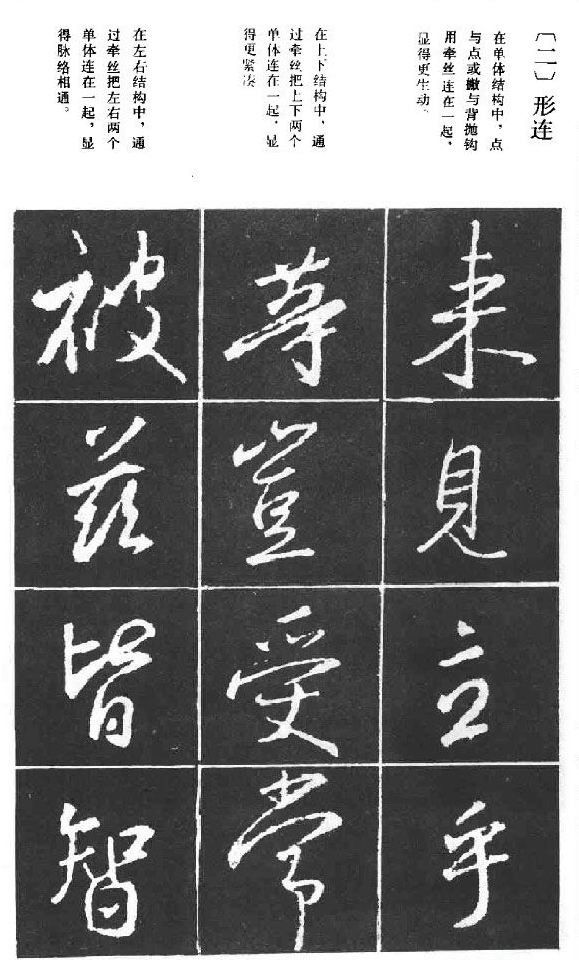 〔二〕形连
在单体结构中，点
与点或撇与背抛钩
用牵丝连在一起，
显得更生动。
在上下结构中，通
过牵丝把上下两个
单体连在一起，显
得更紧凑
在左右结构中，通
过牵丝把左右两个
单体连在一起，显
得脉络相通。
来
見
立
乎
等
豈
受
常
被
茲
皆
智